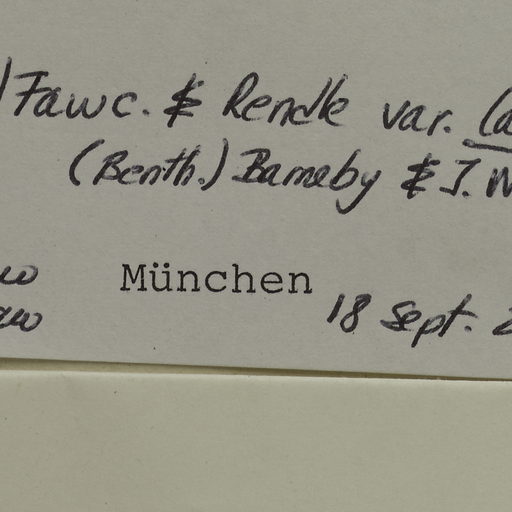 ) Fawc. & Rendle var.
(Benth.) Barneby & J.
München
18 Sept.